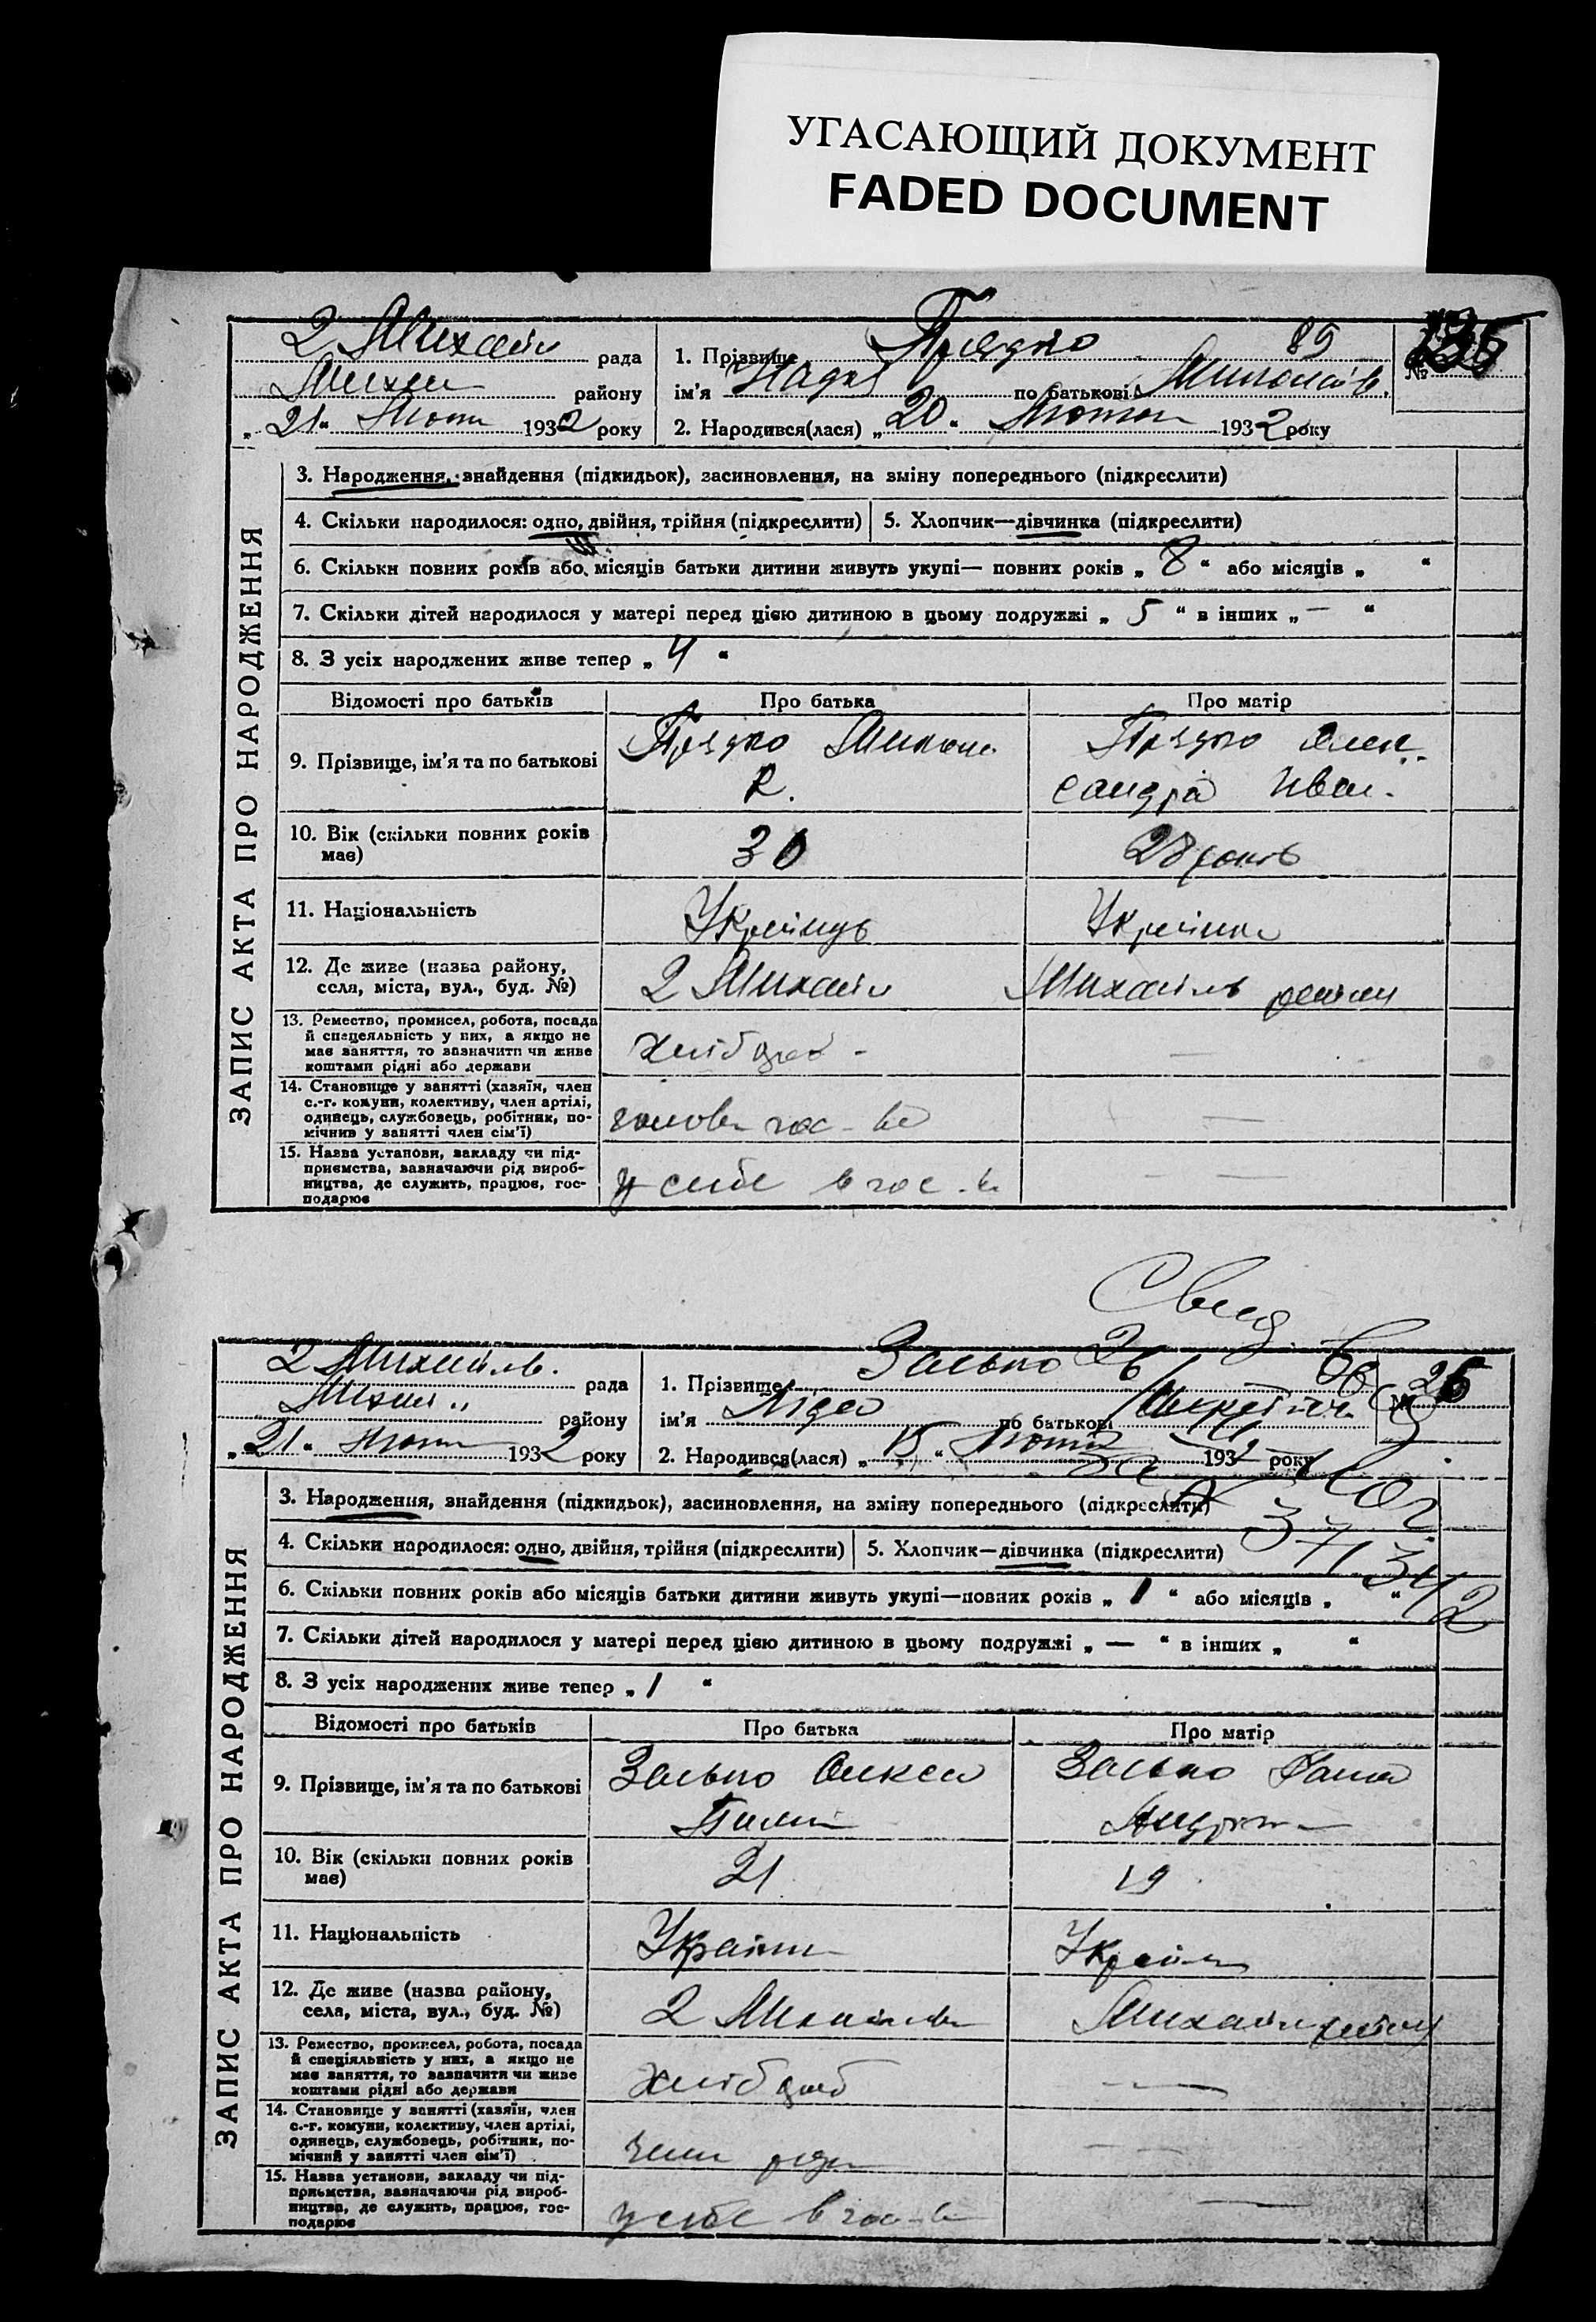 УГАСАЮЩИЙ ДОКУМЕНТ
FADED DOCUMENT
2 Михайлів рада
Михай району
„21“ Лютого 1932 року
1. Прізвище 89
ім’я Надія по батькові Миколаїв.
2. Народився(лася) „20“ Лютого 1932 року
№
ЗАПИС АКТА ПРО НАРОДЖЕННЯ
3. Народження, знайдення (підкидьок), засиновлення, на зміну попереднього (підкреслити)
4. Скільки народилося: одно, двійня, трійня (підкреслити)
5. Хлопчик—дівчинка (підкреслити)
6. Скільки повних років або місяців батьки дитини живуть укупі— повних років „ 8 “ або місяців „ “
7. Скільки дітей народилося у матері перед цією дитиною в цьому подружжі „ 5 “ в інших „ — “
8. З усіх народжених живе тепер „ 4 “
Відомості про батьків
Про батька
Про матір
9. Прізвище, ім’я та по батькові
Микола
К.
Олек
сандра Іван.
10. Вік (скільки повних років має)
30
28 років
11. Національність
Українць
Українка
12. Де живе (назва району, села, міста, вул., буд. №)
2 Михайлів
Михайлів району
13. Ремество, промисел, робота, посада й спецеяльність у них, а якщо не має заняття, то зазначити чи живе коштами рідні або держави
хлібороб -
—
14. Становище у занятті (хазяїн, член с.-г. комуни, колективу, член артілі, одинець, службовець, робітник, помічник у занятті член сім’ї)
голова гос-ва
—
15. Назва установи, закладу чи підприємства, зазначаючи рід виробництва, де служить, працює, господарює
у себе в гос-ві
— —
Свид.
2 Михайлів. рада
Михай району
„21“ Лютого 1932 року
1. Прізвище
ім’я Ліда по батькові
2. Народився(лася) „15“ Лютого 1932 року
№ 26
ЗАПИС АКТА ПРО НАРОДЖЕННЯ
3. Народження, знайдення (підкидьок), засиновлення, на зміну попереднього (підкреслити)
4. Скільки народилося: одно, двійня, трійня (підкреслити)
5. Хлопчик—дівчинка (підкреслити)
6. Скільки повних років або місяців батьки дитини живуть укупі—повних років „ 1 “ або місяців „ “
7. Скільки дітей народилося у матері перед цією дитиною в цьому подружжі „ — “ в інших „ “
8. З усіх народжених живе тепер „ 1 “
Відомості про батьків
Про батька
Про матір
9. Прізвище, ім’я та по батькові
Олекса
10. Вік (скільки повних років має)
21
19
11. Національність
Українц
Україн
12. Де живе (назва району, села, міста, вул., буд. №)
2 Михайлівка
Михайлів району
13. Ремество, промисел, робота, посада й спеціяльність у них, а якщо не має заняття, то зазначити чи живе коштами рідні або держави
хлібороб
—
14. Становище у занятті (хазяїн, член с.-г. комуни, колективу, член артілі, одинець, службовець, робітник, помічний у занятті член сім’ї)
член родин
— —
15. Назва установи, закладу чи підприємства, зазначаючи рід виробництва, де служить, працює, господарює
у себе в гос-ві
—